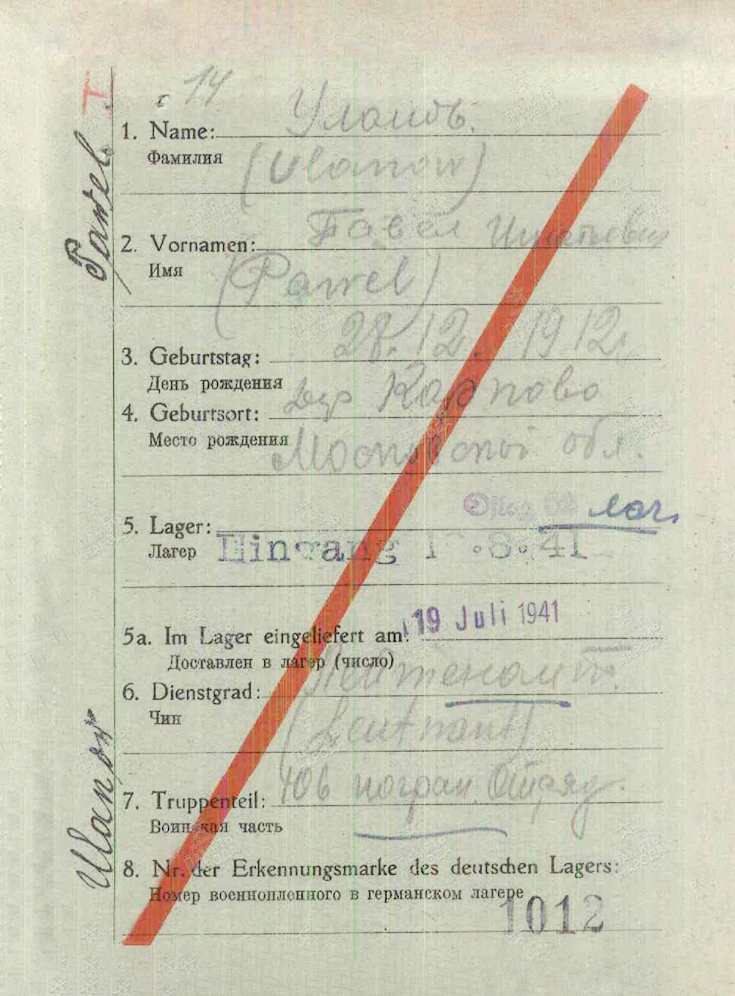 I
14
1. Name: Улановъ.
Фамилия
(Ulanow)
2. Vornamen: Павел Игнатьевич
Имя
(Pawel)
3. Geburtstag: 28.12.1912г.
День рождения
4. Geburtsort: дер Карпово
Место рождения Московской обл.
5. Lager: Oflag 62
Лагер Eingang 1 .8.41
5a. Im Lager eingeliefert am: 19 Juli 1941
Доставлен в лагер (число)
6. Dienstgrad: Лейтенант.
Чин
(Leutnant)
7. Truppenteil: 106 погран. Отряд.
Воинская часть
8. Nr. der Erkennungsmarke des deutschen Lagers:
Номер военнопленного в германском лагере
1012
Pawel
Ulanow